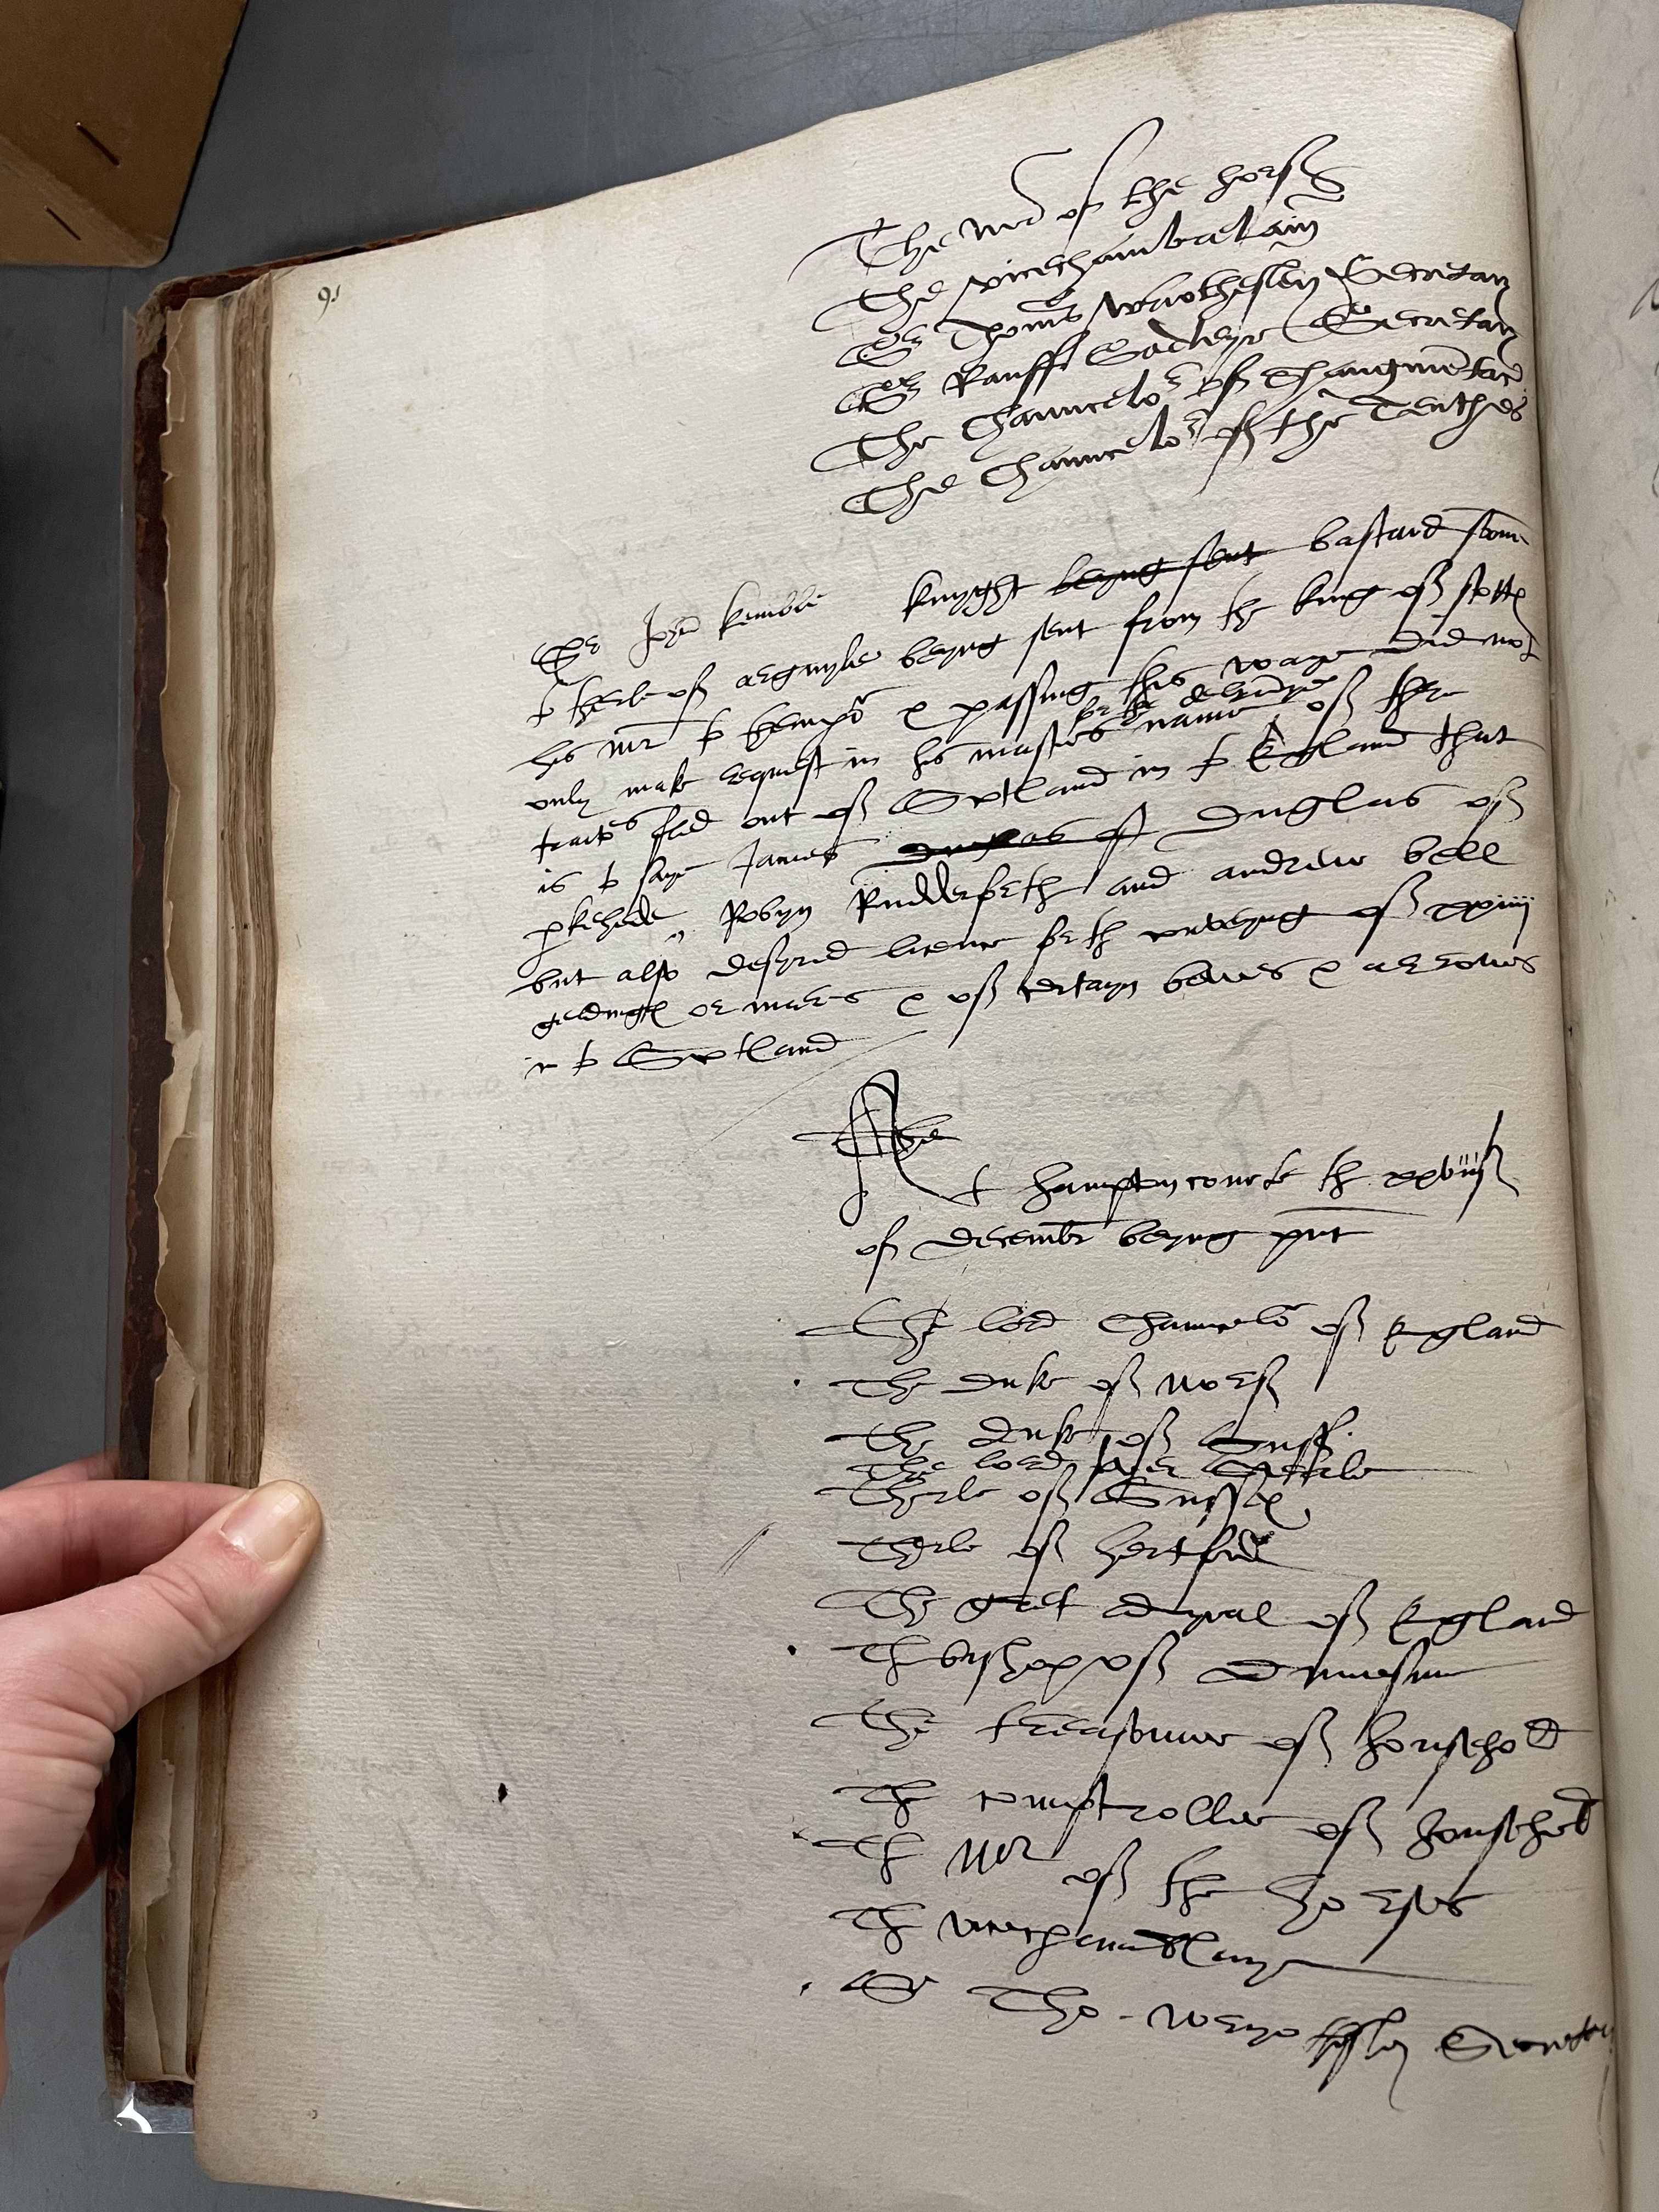 91
The Mr of the horse
The vicechambrelain
Sr Thoms Wriothesley Secretary
Sr Rauff Sadleyr Secretary
The Chauncelor of Thaugmentac
The Chauncelor of the Tenthes
Sr John Kemble knyght beyng sent bastard sonne
to therle of argwyle beyng sent from the king of scotts
his mr to thempor & passing this waye did not
only make request in his masters name for the delyverye of the
traitors fled out of Scotland in to England that
is to saye James Duglas of
pkehede Robyn Rudderforth and andrew bell
but also desyred licence for th conveyng of xxiiii
geldings or mares & of certayn bowes & arrowes
in to Scotland
At hampton courte the xxviiith
of decembr beyng pnt
The lord Chauncelor of England
The duke of Norf
The duke of Suff
The lord prev Seale
Therle of Sussex
Therle of hertford
The gret admyral of England
The bysshop of Duresme
The treasourer of houshold
The comptroller of houshold
The Mr of the horses
The vicechambrlayn
Sr Tho. Wryothesley Secretary